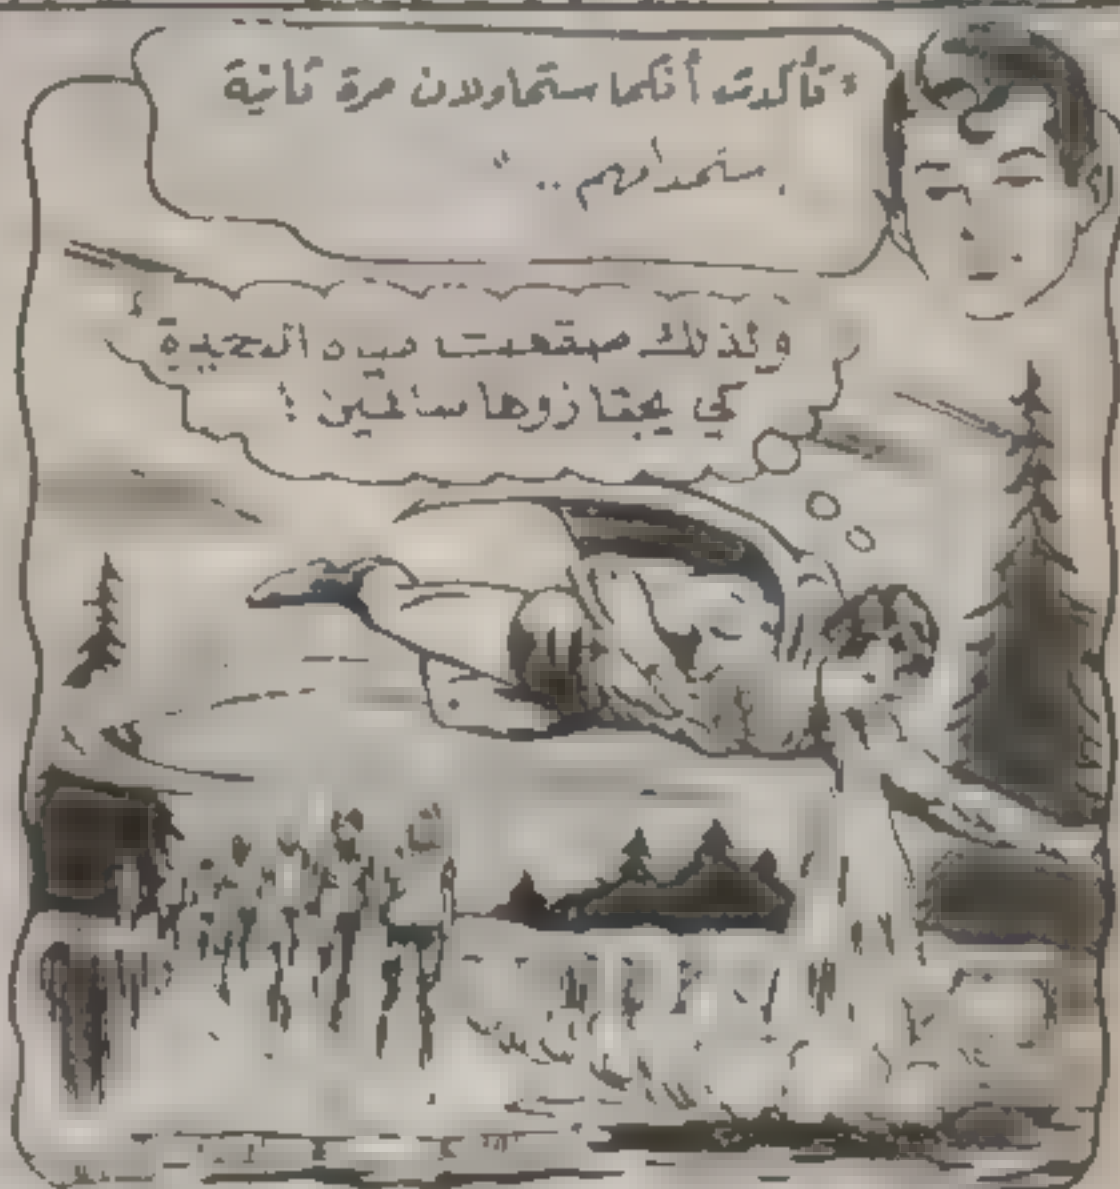 " تأكدت أنكما ستحاولان مرة ثانية
.. "
ولذلك مياه البحيرة
كي يجتازوها سالمين !